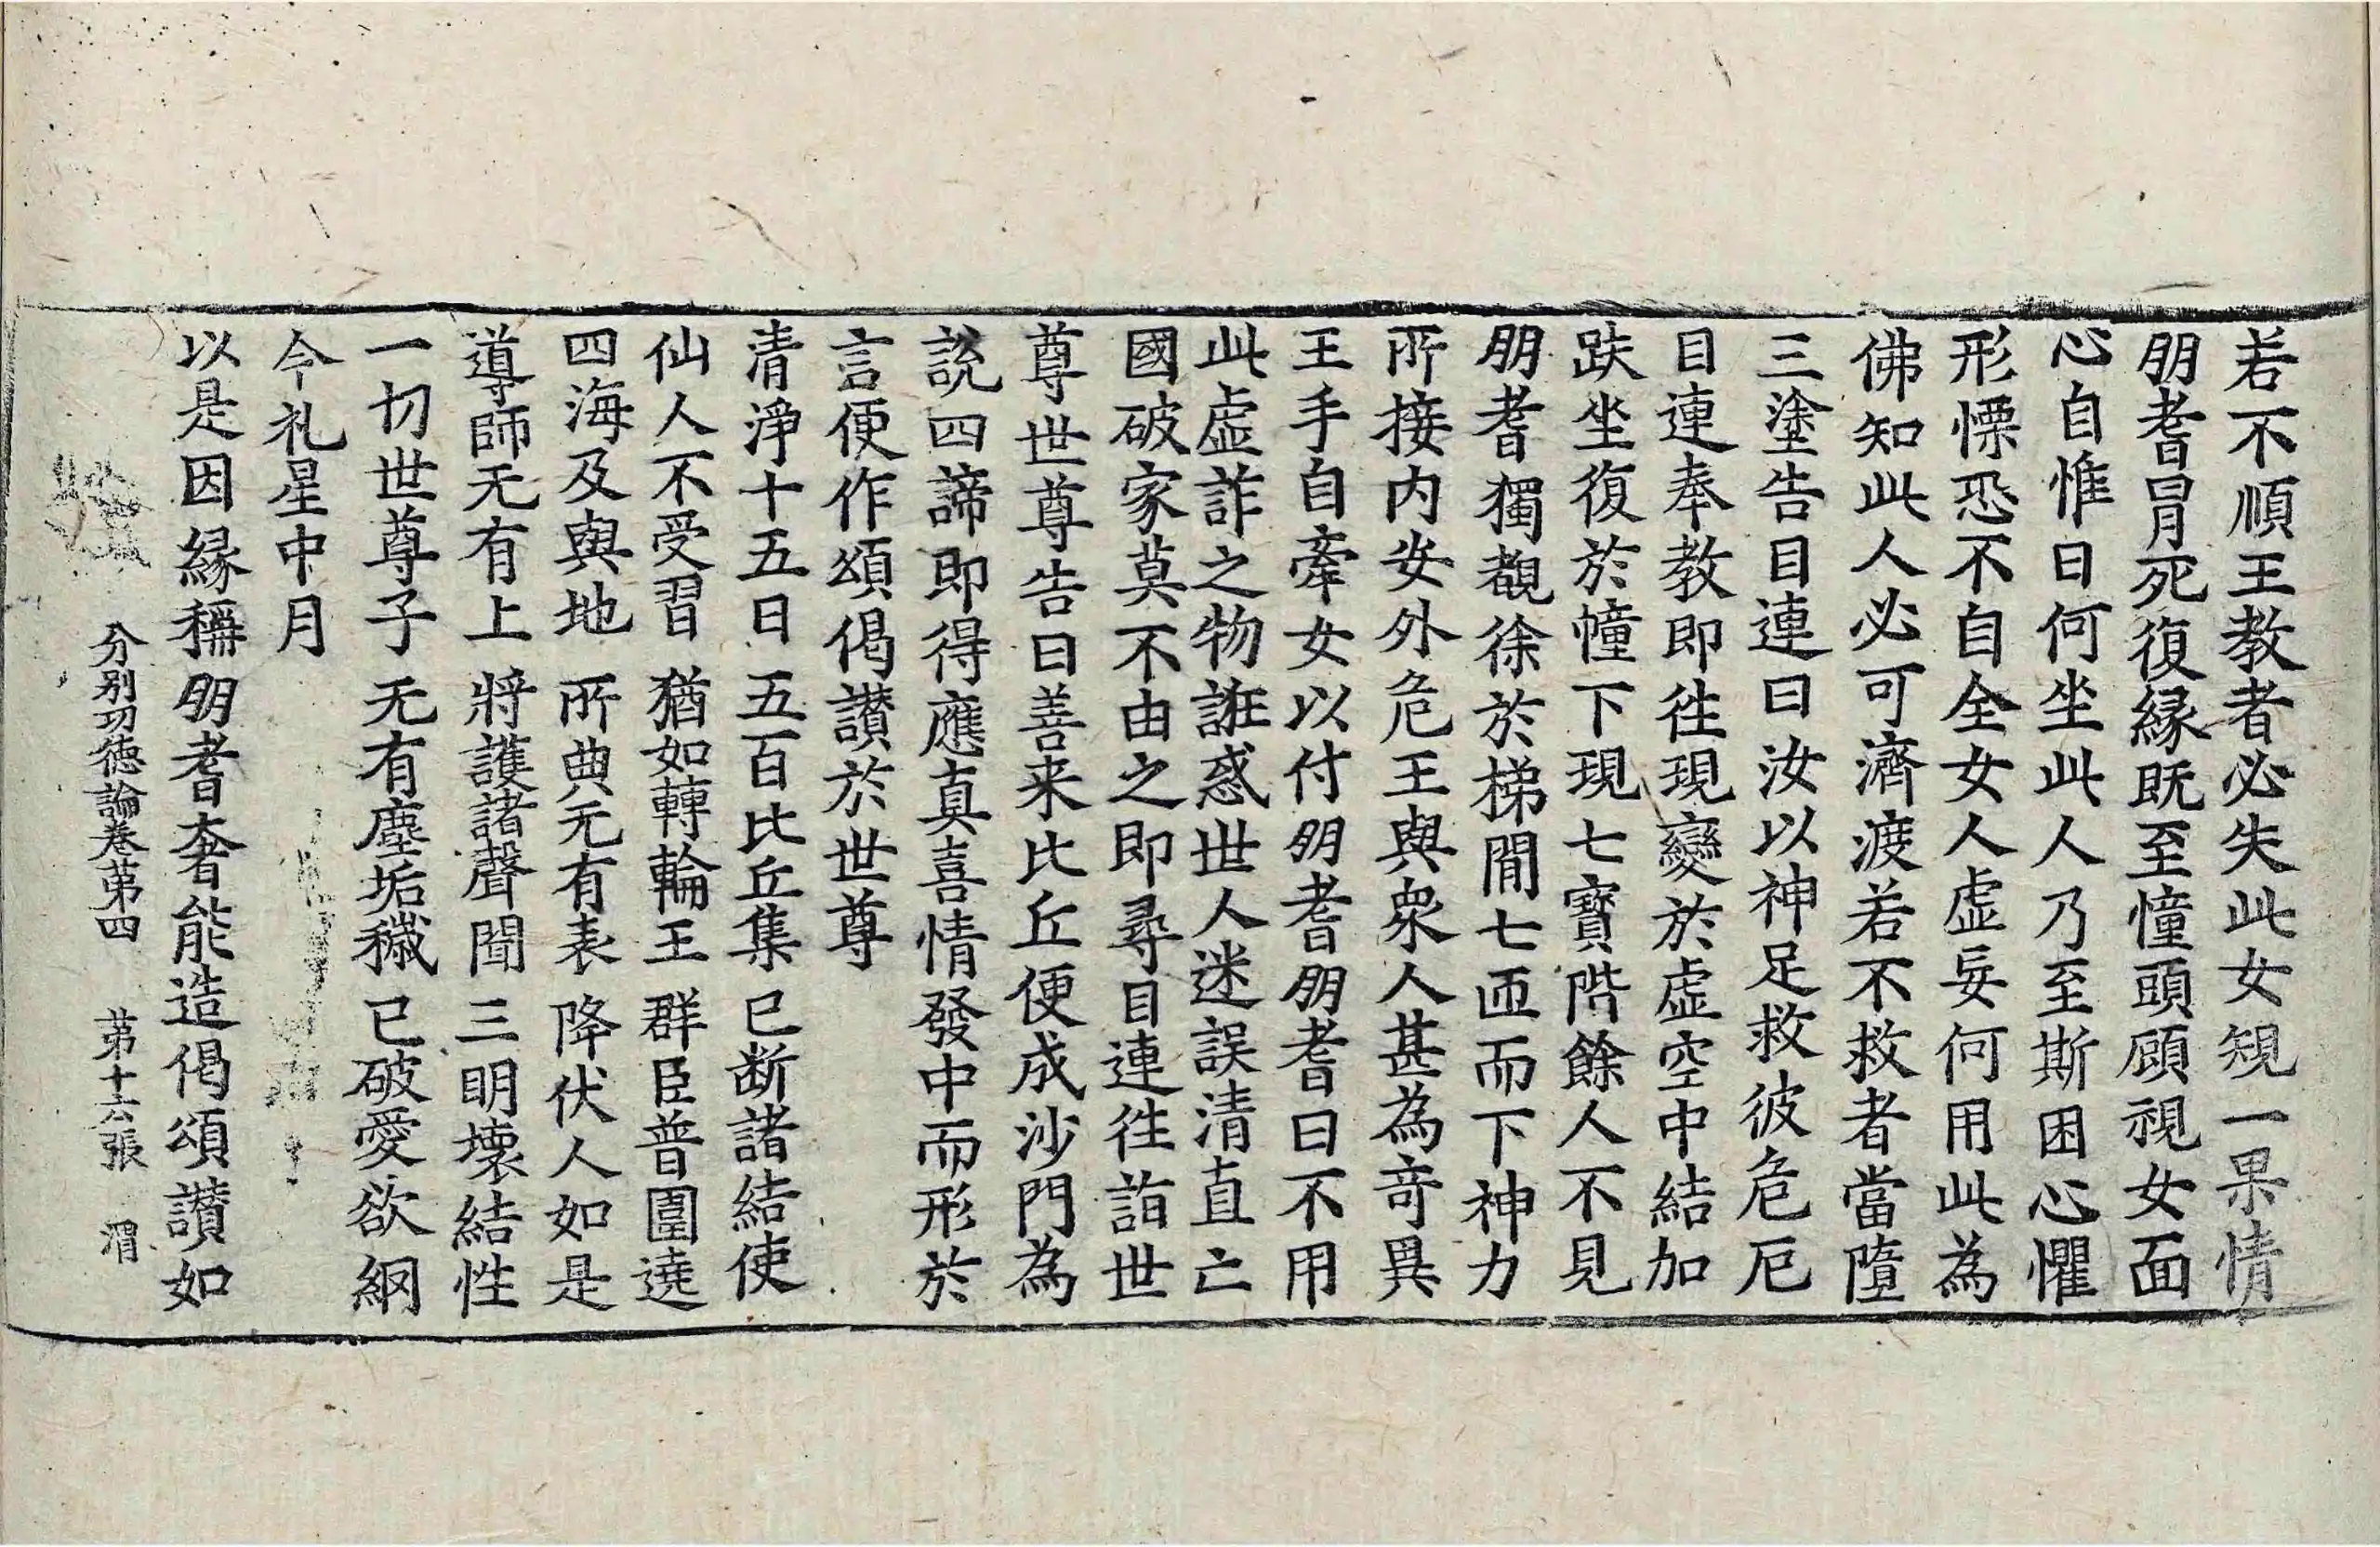 若不順王教者必失此女䂓一果情
朋耆冒死復緣既至憧頭顧視女面
心自惟曰何坐此人乃至斯困心懼
形慄恐不自全女人虛妄何用此為
佛知此人必可濟渡若不救者當墮
三塗告目連曰汝以神足救彼危厄
目連奉教即往現變於虛空中結加
趺坐復於幢下現七寶階餘人不見
朋耆獨覩徐於梯間七匝而下神力
所接内安外危王與衆人甚為奇異
王手自牽女以付朋耆朋耆曰不用
此虛詐之物誑惑世人迷誤清直亡
國破家莫不由之即尋目連往詣世
尊世尊告曰善来比丘便成沙門為
説四諦即得應真喜情發中而形於
言便作頌偈讃於世尊
清淨十五日 五百比丘集 已断諸結使
仙人不受習 猶如轉輪王 群臣普圍遶
四海及與地 所典无有表 降伏人如是
導師无有上 將護諸聲聞 三明壞結性
一切世尊子 无有塵垢穢 已破愛欲網
今礼星中月
以是因緣稱朋耆奢能造偈頌讃如
分别功德論卷苐四 苐十六張 渭